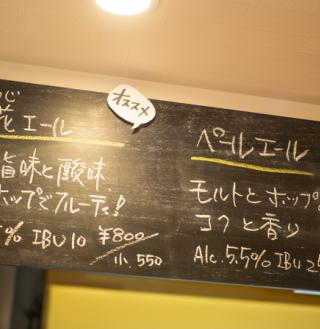 オススメ
花エール
旨味と酸味
ホップでフルーティ!
% IBU 10 ¥800
小.550
ペールエール
モルトとホップ
コクと香り
Alc. 5.5% IBU 25